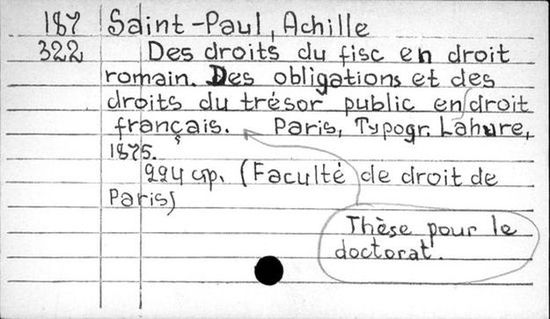 187 Saint-Paul, Achille
322 Des droits du fisc en droit
romain. Des obligations et des
droits du trésor public en droit
français. Paris, Typogr. Lahure,
1875.
224 p. (Faculté de droit de
Paris)
Thèse pour le
doctorat.